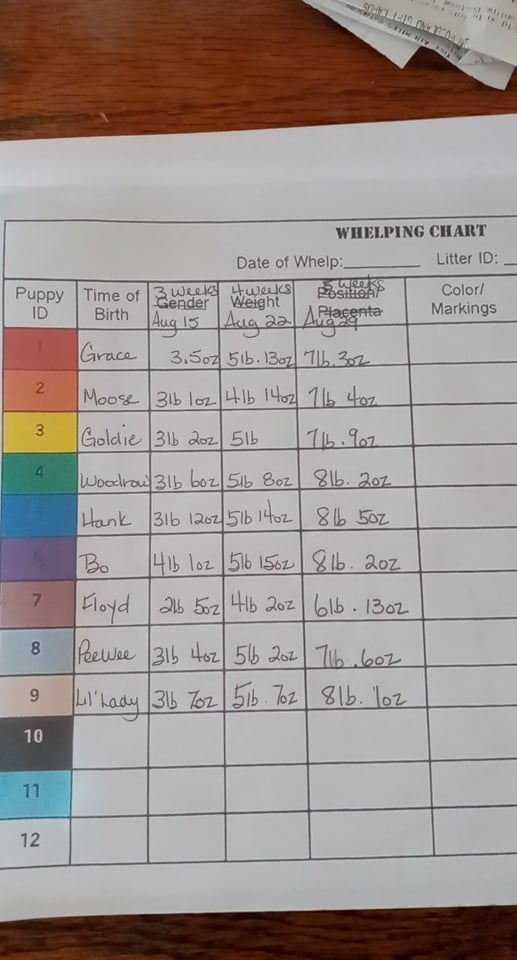 WHELPING CHART
Date of Whelp: Litter ID:
Puppy ID Time of Birth 3 weeks Gender Aug 15 4 weeks Weight Aug 22 5 weeks Position/ Placenta Aug 29 Color/ Markings
1 Grace 3.5oz 5lb.13oz 7lb.3oz
2 Moose 3lb 1oz 4lb 14oz 7lb 4oz
3 Goldie 3lb 2oz 5lb 7lb.9oz
4 Woodrow 3lb 6oz 5lb 8oz 8lb. 2oz
5 Hank 3lb 12oz 5lb 14oz 8lb 5oz
6 Bo 4lb 1oz 5lb 15oz 8lb. 2oz
7 Floyd 2lb 5oz 4lb 2oz 6lb. 13oz
8 PeeWee 3lb 4oz 5lb 2oz 7lb.6oz
9 Lil'Lady 3lb 7oz 5lb. 7oz 8lb. 1oz
10
11
12